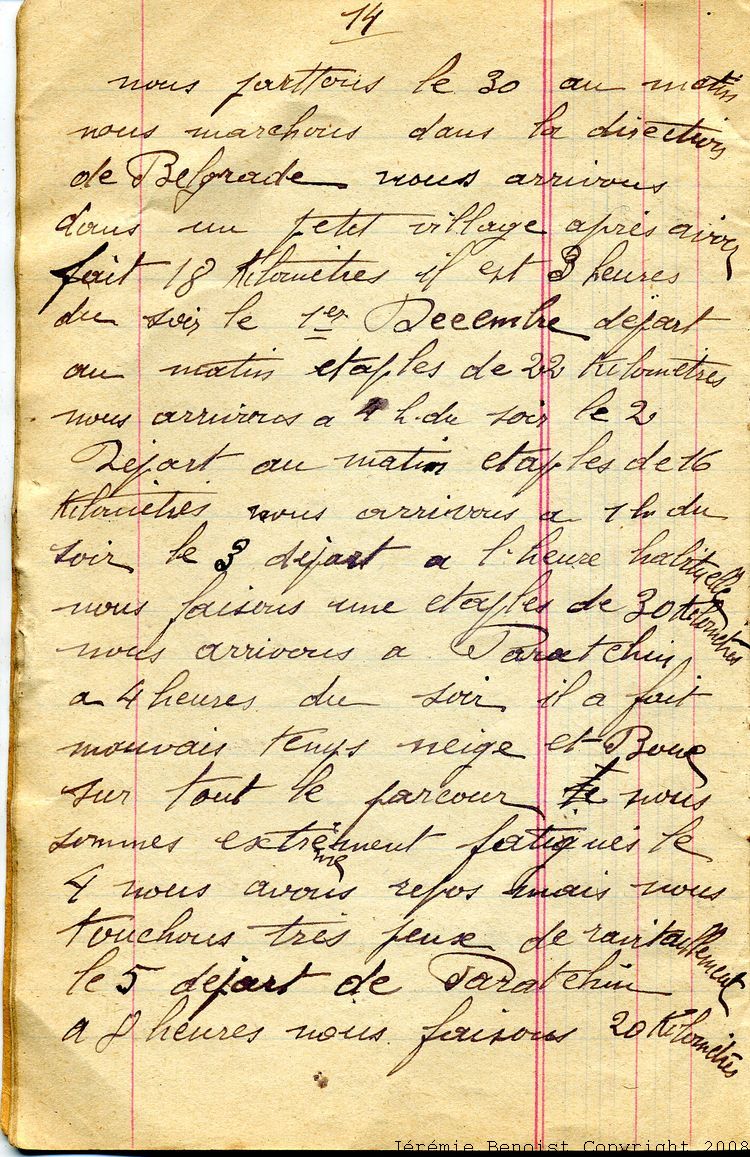 14
nous parttons le 30 au matin
nous marchons dans la direction
de Belgrade nous arrivons
dans un petit village après avoir
fait 18 Kilomètres il est 3 heures
du soir le 1er Decembre départ
au matin etaples de 22 Kilomètres
nous arrivons a 4 h. du soir le 2
Départ au matin etaples de 16
Kilomètres nous arrivons a 1 h du
soir le 3 départ a l'heure habituelle
nous faisons une etaples de 30 Kilomètres
nous arrivons a Paratchin
a 4 heures du soir il a fait
mauvais temps neige et Boue
sur tout le parcour nous
sommes extrêmement fatigués le
4 nous avons repos mais nous
touchons très peux de ravitaillement
le 5 départ de Paratchin
a 8 heures nous faisons 20 Kilomètres
Jérémie Benoist Copyright 2008